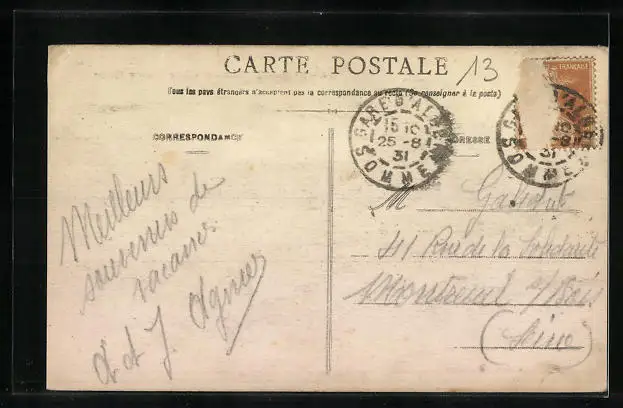 CARTE POSTALE
13
Tous les pays étrangers n'acceptent pas la correspondance au recto (Se renseigner à la poste)
FRANÇAISE
CORRESPONDANCE
GARE D'ALBERT
15
25-8
31
SOMME
15
8
31
SOMME
M
41 Rue de la Solidarité
Montreuil s/Bois
(Seine)
Meilleurs
souvenirs de
vacances
A et J. Agnus